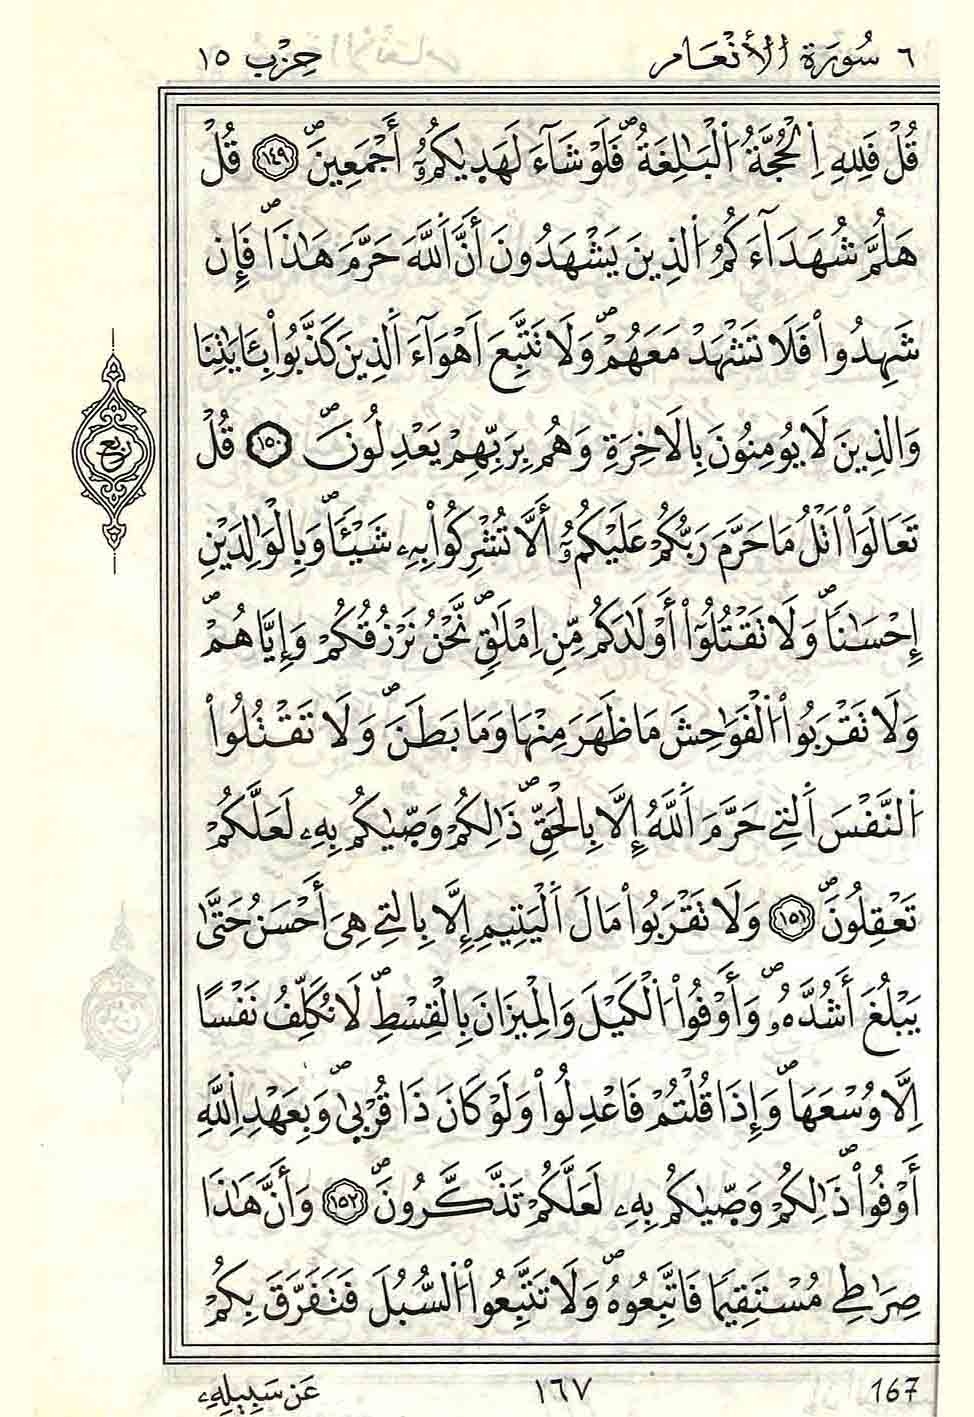 ٦ سُورَةُ الأَنْعَامِ حِزْب ١٥
قُلْ فَلِلهِ اِ۬لْحُجَّةُ اُ۬لْبَٰلِغَةُۖ فَلَوْ شَآءَ لَهَد۪يٰكُمُۥٓ أَجْمَعِينَۖ ١٤٩ قُلْ
هَلُمَّ شُهَدَآءَكُمُ اُ۬لذِينَ يَشْهَدُونَ أَنَّ اَ۬للَّهَ حَرَّمَ هَٰذَاۖ فَإِن
شَهِدُواْ فَلَا تَشْهَدْ مَعَهُمْۖ وَلَا تَتَّبِعَ اَهْوَآءَ اَ۬لذِينَ كَذَّبُواْ بِـَٔايَٰتِنَا
وَالذِينَ لَا يُومِنُونَ بِالَاخِرَةِ وَهُم بِرَبِّهِمْ يَعْدِلُونَۖ ١٥٠ قُلْ
تَعَالَوَاْ اَتْلُ مَا حَرَّمَ رَبُّكُمْ عَلَيْكُمُۥٓ أَلَّا تُشْرِكُواْ بِهِۦ شَيْـٔاٗۖ وَبِالْوَٰلِدَيْنِ
إِحْسَٰناٗۖ وَلَا تَقْتُلُوٓاْ أَوْلَٰدَكُم مِّنِ اِمْلَٰقٖۖ نَّحْنُ نَرْزُقُكُمْ وَإِيَّاهُمْۖ
وَلَا تَقْرَبُواْ اُ۬لْفَوَٰحِشَ مَا ظَهَرَ مِنْهَا وَمَا بَطَنَۖ وَلَا تَقْتُلُواْ
اُ۬لنَّفْسَ اَ۬لتِے حَرَّمَ اَ۬للَّهُ إِلَّا بِالْحَقِّۖ ذَٰلِكُمْ وَصّ۪يٰكُم بِهِۦ لَعَلَّكُمْ
تَعْقِلُونَۖ ١٥١ وَلَا تَقْرَبُواْ مَالَ اَ۬لْيَتِيمِ إِلَّا بِالتِے هِيَ أَحْسَنُ حَتَّىٰ
يَبْلُغَ أَشُدَّهُۥۖ وَأَوْفُواْ اُ۬لْكَيْلَ وَالْمِيزَانَ بِالْقِسْطِۖ لَا نُكَلِّفُ نَفْساً
اِلَّا وُسْعَهَاۖ وَإِذَا قُلْتُمْ فَاعْدِلُواْ وَلَوْ كَانَ ذَا قُرْبيٰۖ وَبِعَهْدِ اِ۬للَّهِ
أَوْفُواْۖ ذَٰلِكُمْ وَصّ۪يٰكُم بِهِۦ لَعَلَّكُمْ تَذَّكَّرُونَۖ ١٥٢ وَأَنَّ هَٰذَا
صِرَٰطِے مُسْتَقِيماٗ فَاتَّبِعُوهُۖ وَلَا تَتَّبِعُواْ اُ۬لسُّبُلَ فَتَفَرَّقَ بِكُمْ
رُبُع
عَن سَبِيلِهِۦ ١٦٧ 167